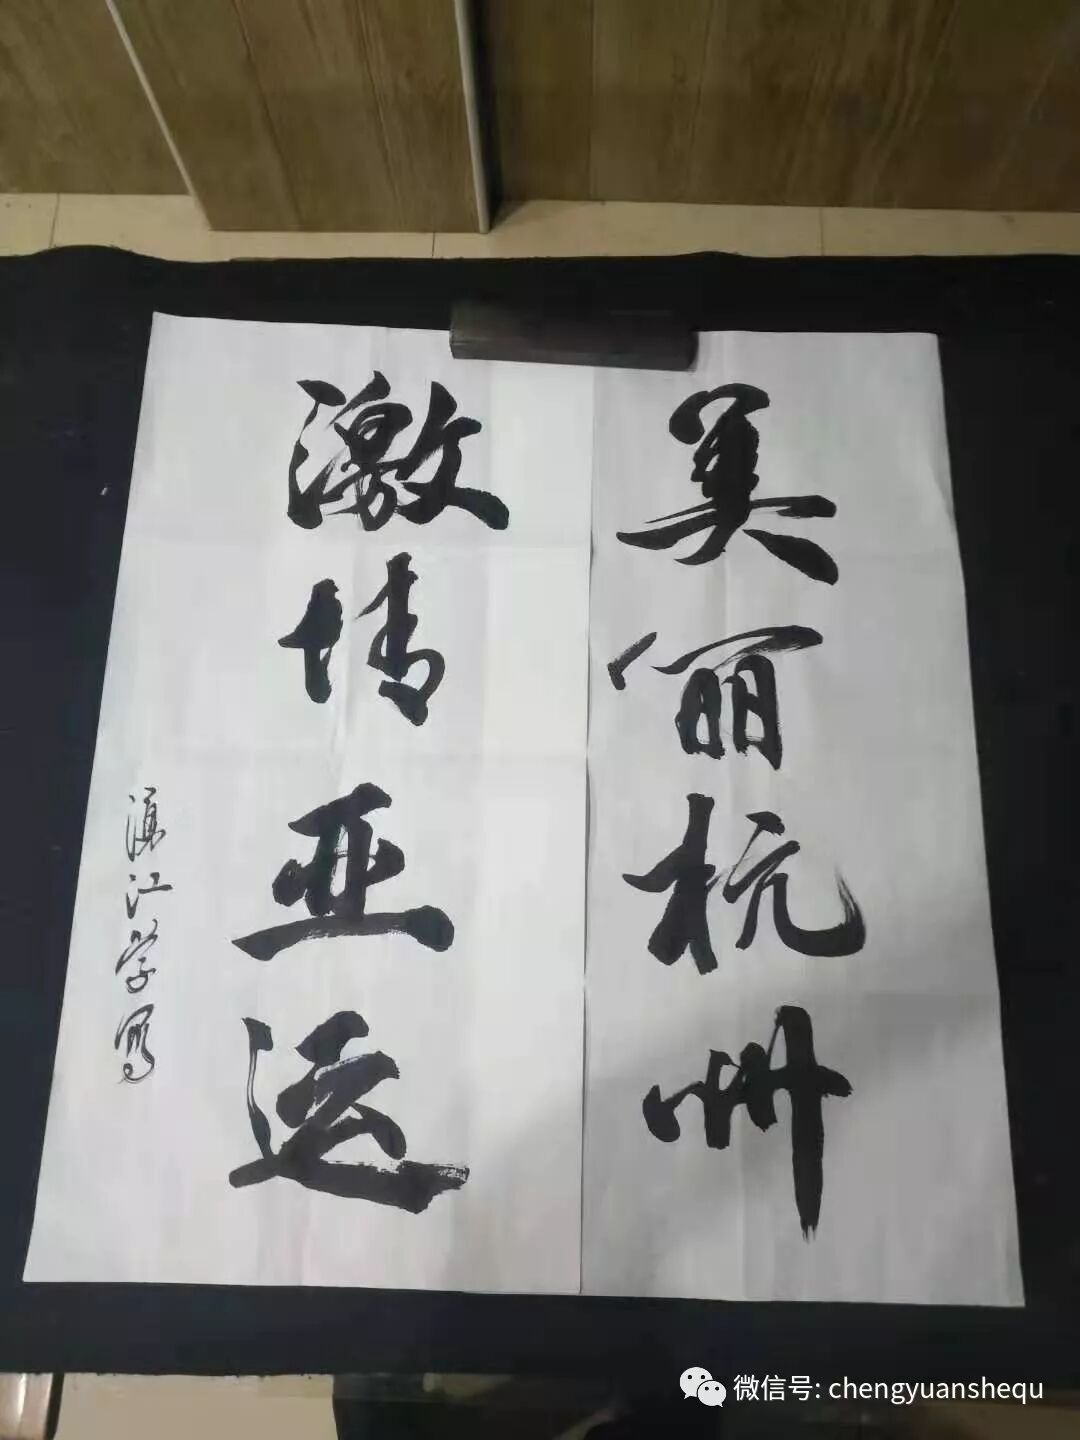 美丽杭州
激情亚运
江学写
微信号: chengyuanshequ